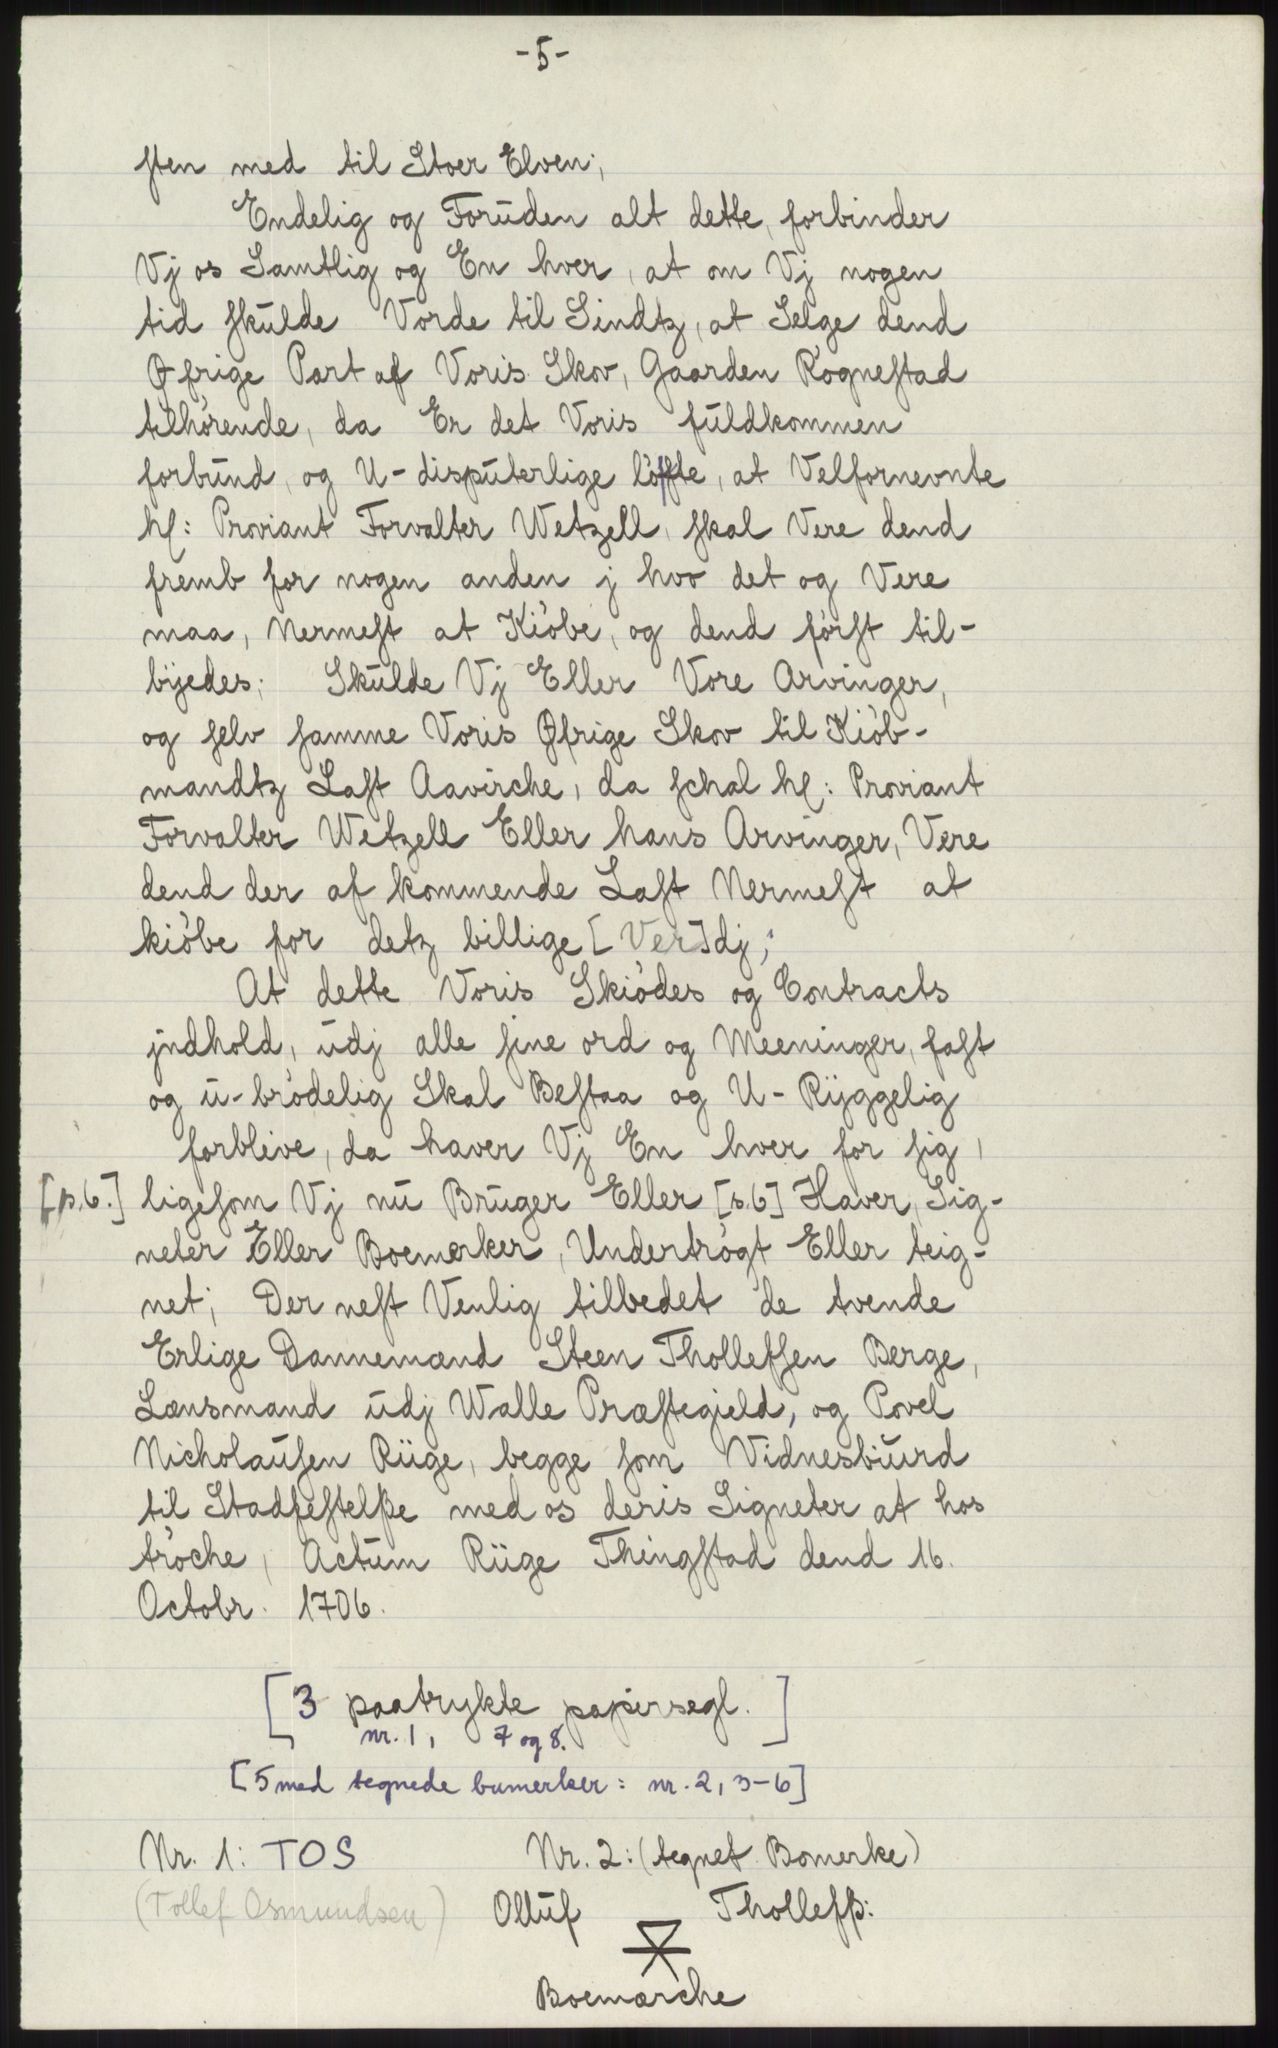 -5-
sten med til Stoer Elven;
Endelig og Foruden alt dette, forbinder
Vj os Samtlig og En hver, at om Vj nogen
tid skulde Vorde til Sindtz, at Selge dend
Øfrige Part af Voris Skov, Gaarden Rognestad
tilhörende, da Er det Voris fuldkommen
forbund, og U-disputerlige löfte, at Velfornevnte
hl: Proviant Forvalter Wetzell, skal Vere dend
fremb for nogen anden j hvo det og Vere
maa, Nermest at Kiöbe, og dend först til-
bijedes; Skulde Vj Eller Vore Arvinger,
og selv samme Voris Øfrige Skov til Kiöb-
mandtz Last Aavirche, da schal hl: Proviant
Forvalter Wetzell Eller hans Arvinger, Vere
dend der af kommende Last Nermest at
kiöbe for detz billige [Ver]dj;
At dette Voris Skiödes og Contracts
jndhold, udj alle sine ord og Meeninger, fast
og u-brödelig Skal Bestaa og U-Rÿggelig
forblive, da haver Vj En hver for sig,
[p.6.] ligesom Vj nu Bruger Eller [s.6] Haver, Sig-
neter Eller Boemerker, Undertrögt Eller teig-
net; Der nest Venlig tilbedet de tvende
Erlige Dannemænd Steen Thollefsen Berge,
Lænsmand udj Walle Præstegield, og Povel
Nicholausen Rüge, begge som Vidnesbiurd
til Stadfestelße med os deris Signeter at hos
tröche, Actum Rüge Thingstad dend 16.
Octobr. 1706.
[3 paatrykte papirsegl.]
nr. 1, 7 og 8.
[5 med tegnede bumerker: nr. 2, 3-6]
Nr. 1: TOS Nr. 2: (tegnet Bomerke)
(Tollef Osmundsen) Olluf Thollefß:
Boemærche